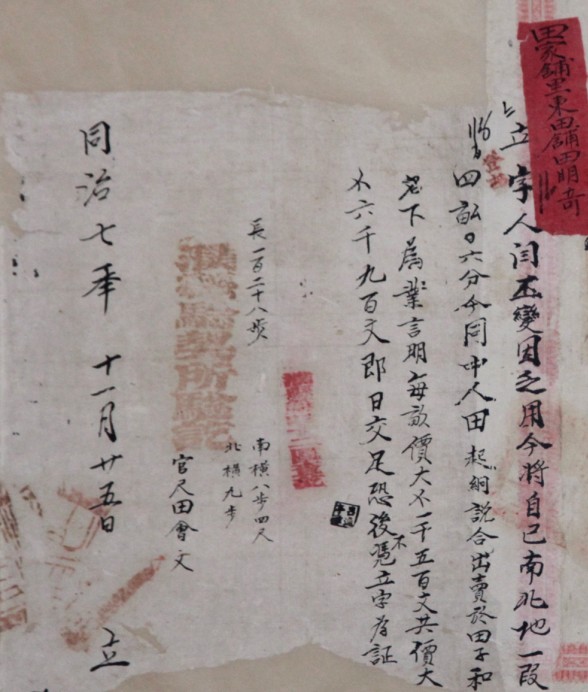 田家鋪里東田鋪田明奇
立字人闫丕變因乏用今將自己南北地一段
四畝〇六分今同中人田起綱説合出賣於田子和
名下為業言明每畝價大不一千五百文共價大
不六千九百文即日交足恐後不憑立字存証
長一百二十八步
南横八步四尺
北横九步
官尺田會文
同治七年十一月廿五日 立
驗契所驗訖